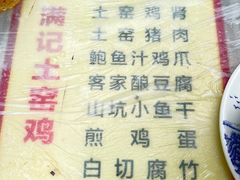 满记土窑鸡
土窑鸡肾
土窑猪肉
鲍鱼汁鸡爪
客家酿豆腐
山坑小鱼干
煎鸡蛋
白切腐竹